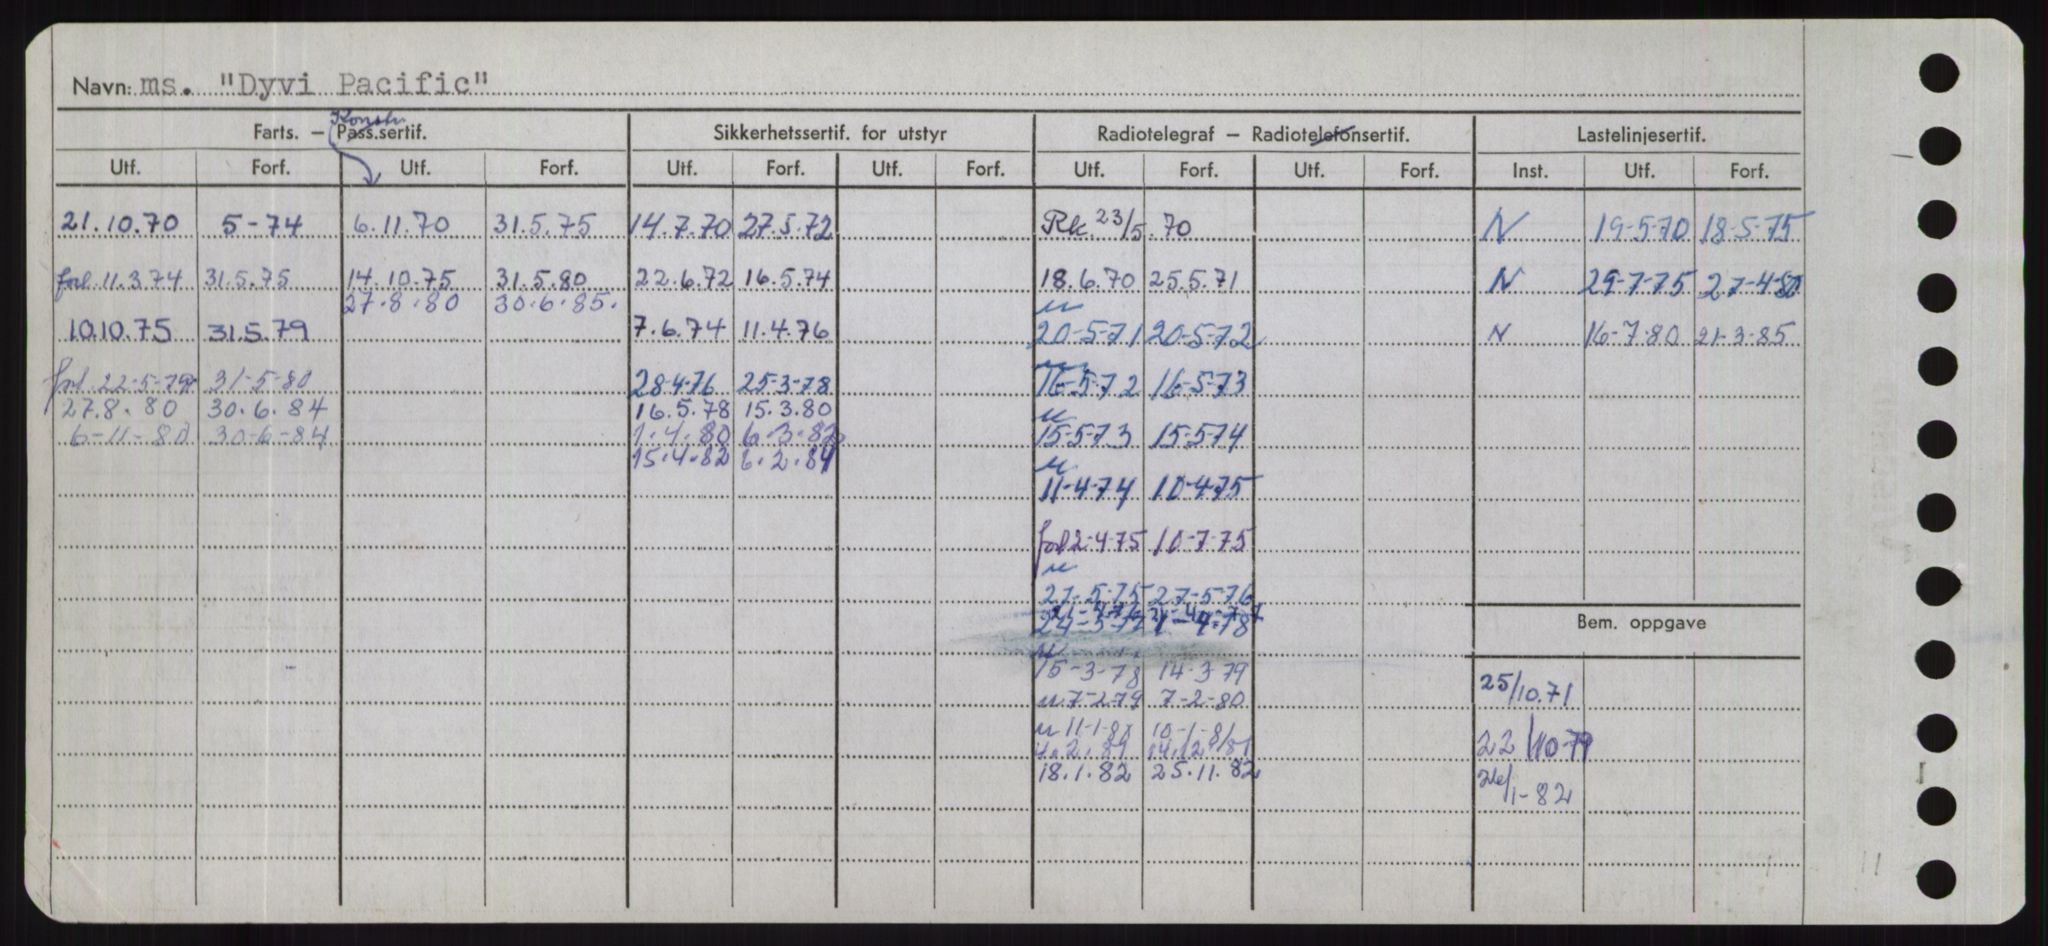 Navn: ms. "Dyvi Pacific"
Konstr
Farts. – Pass.sertif. Sikkerhetssertif. for utstyr Radiotelegraf – Radiotelefonsertif. Lastelinjesertif.
Utf. Forf. Utf. Forf. Utf. Forf. Utf. Forf. Utf. Forf. Utf. Forf. Inst. Utf. Forf.
21.10.70 5-74 6.11.70 31.5.75 14.7.70 27.5.72 Rk. 23/5.70 N 19-5-70 18-5-75
forl. 11.3.74 31.5.75 14.10.75 31.5.80 22.6.72 16.5.74 18.6.70 25.5.71 N 29-7-75 27-4-80
27.8.80 30.6.85.
10.10.75 31.5.79 7.6.74 11.4.76 20-5-71 20-5-72 N 16-7-80 21-3-85
forl. 22-5-79 31-5-80 28-4-76 25-3-78 16-5-72 16-5-73
27.8.80 30.6.84 16.5.78 15.3.80
6-11-80 30-6-84 1.4.80 6.3.82 15-5-73 15-5-74
15.4.82 6.2.84
11-4-74 10-4-75
forl 2-4-75 10-7-75
27-5-75 27-5-76
Bem. oppgave
15-3-78 14-3-79
25/10.71
7-2-79 7-2-80
11-1-80 10-1-81
22/10-79
18.1.82 25.11.82
/1-82